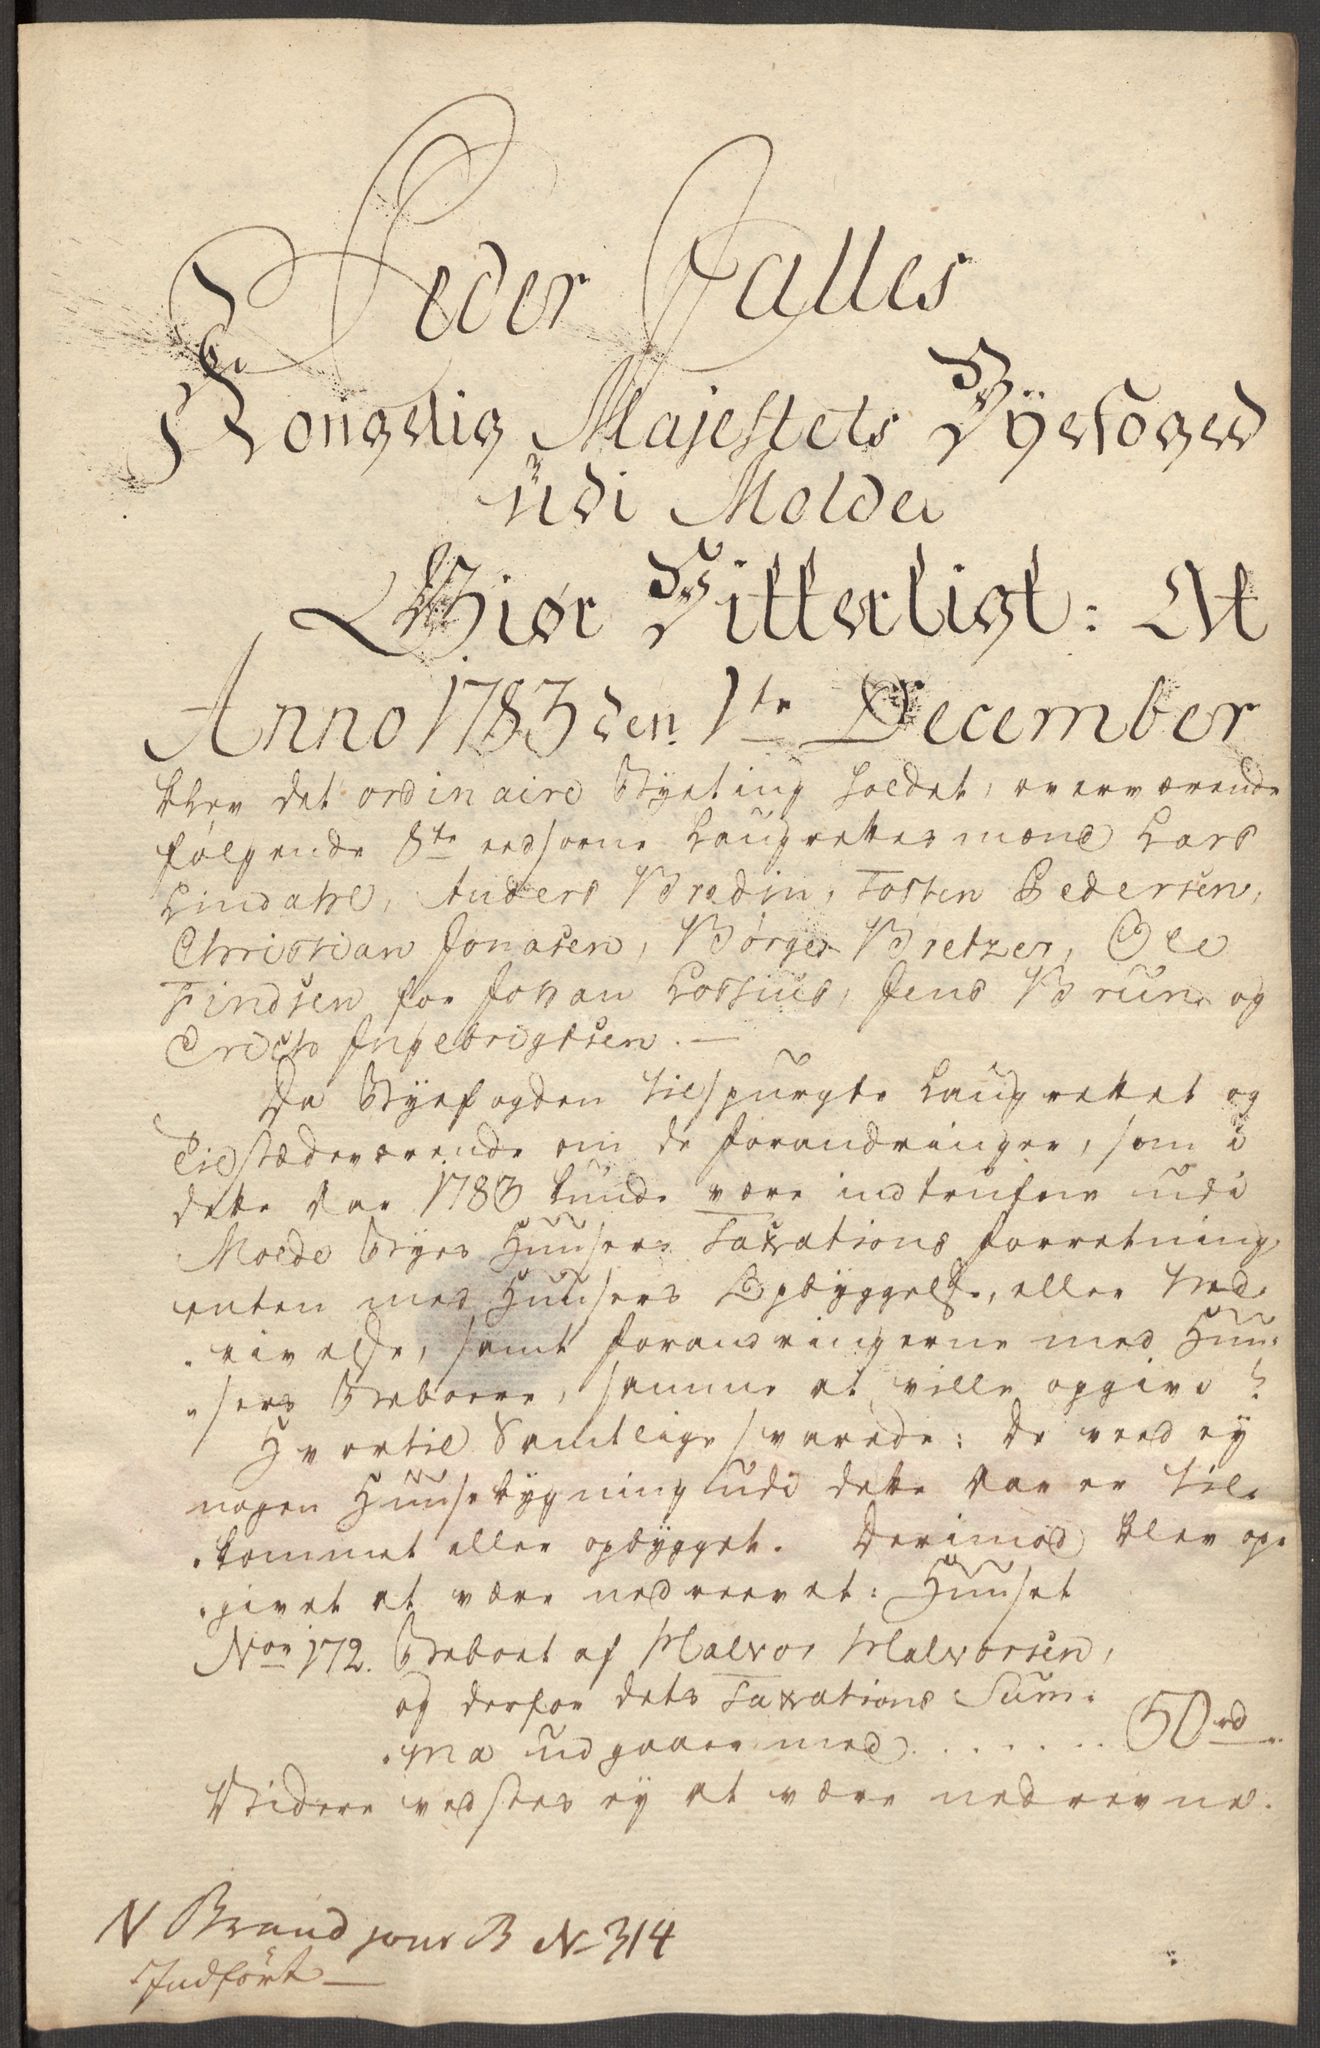 Peder Dalles
Kongelig Majestets Byefoged
udi Molde
Giør Vitterligt: At
Anno 1783 den 1te December
blev det ordinaire Byeting holdet, overværende
følgende 8te eedsorne Laugrettes mænd Lars
Lindahl, Anders Bredin, Tosten Pedersen,
Christian Jonasen, Børge Bretzer, Ole
Findsen for Johan Lossius, Jens Bruun og
Erich Ingebrigtsen. —
Da Byefogden tilspurgte Laugrettet og
Tilstædeværende om de forandringer, som i
dette Aar 1783 kunde være indtrufne udi
Molde Byes Huusers Taxations forretning
enten med Huusers Opbyggelse, eller Ned-
rivelse, samt forandringerne med Huu-
sers Beboere, samme at ville opgive?
Hvortil Samtlige svarede: De veed ey
nogen Huusebygning udi dette Aar er til-
kommet eller opbygget. Derimod blev op-
givet at være nedreevet: Huuset
Non 172. Beboet af Halvor Halvorsen,
og derfor dets Taxations Sum-
ma udgaaer med . . . . . . 50 rd
Videre vedstes ey at være nedrevne.
N Brand jour B N 314
Indført —